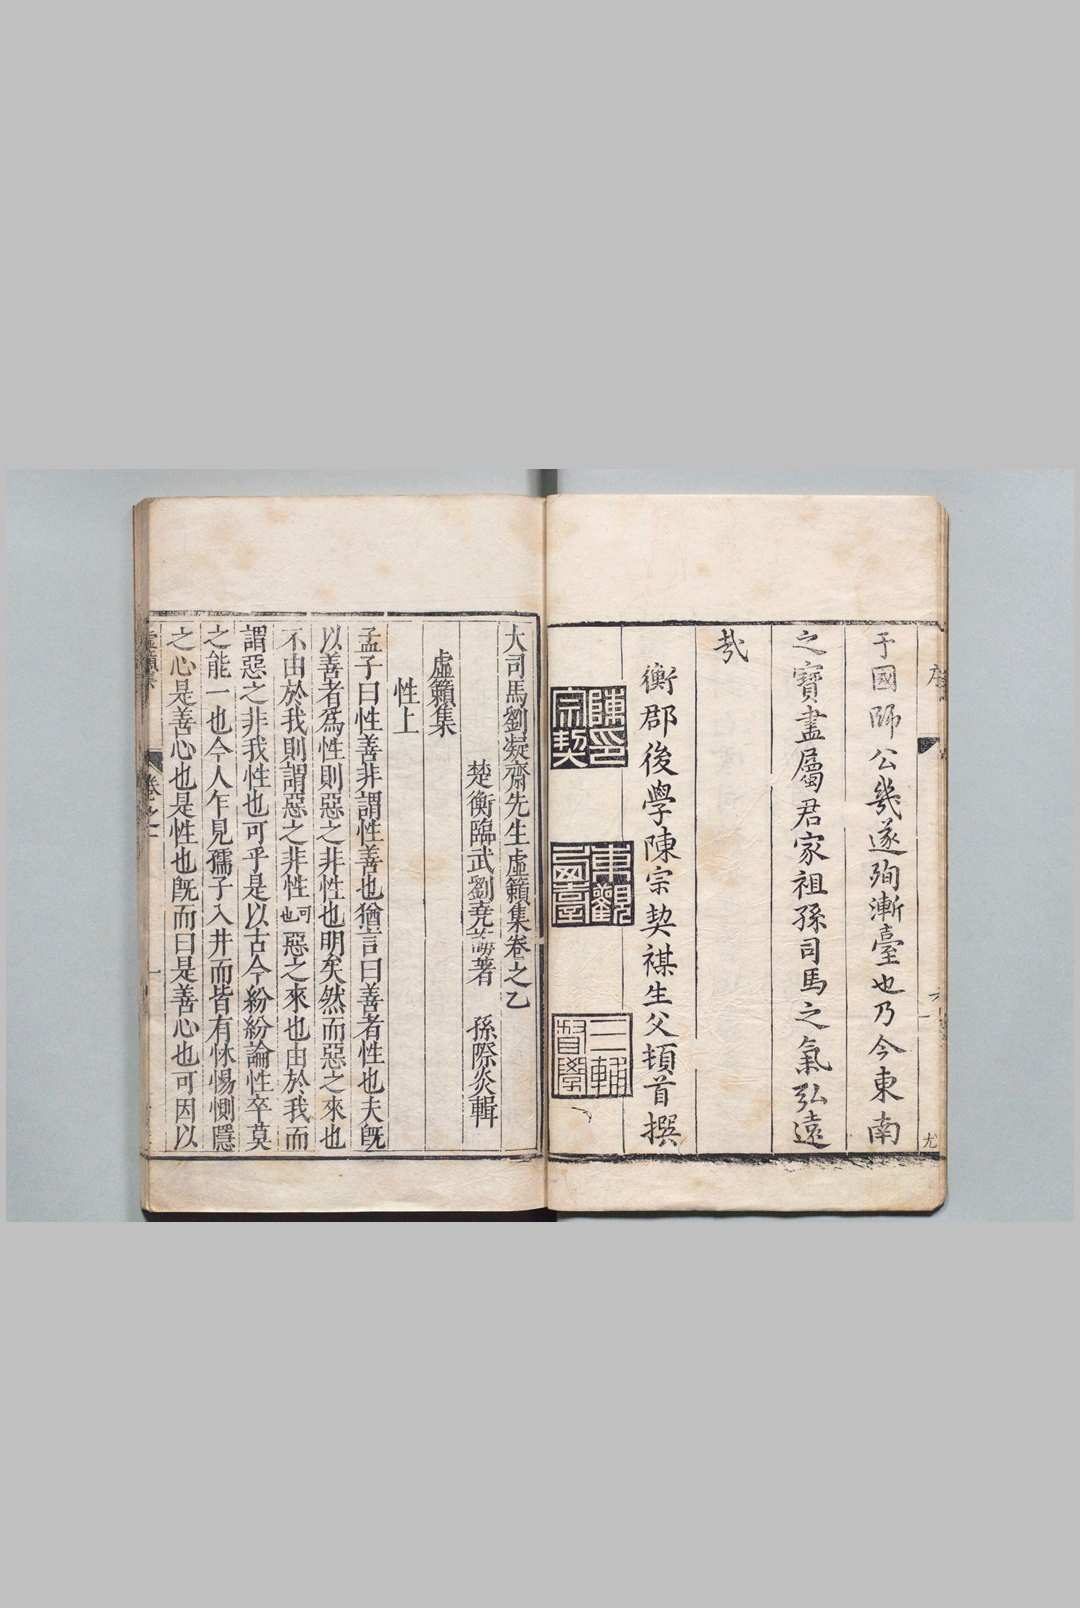 于國師公幾遂殉漸臺也乃今東南
之寶盡屬君家祖孫司馬之氣弘遠
哉
衡郡後學陳宗契禖生父頓首撰
陳印宗契
三輔督學
大司馬劉凝齋先生虛籟集卷之乙
楚衡臨武劉堯誨著 孫際炎輯
虛籟集
性上
孟子曰性善非謂性善也猶言曰善者性也夫既
以善者為性則惡之非性也明矣然而惡之來也
不由於我則謂惡之非性可也惡之來也由於我而
謂惡之非我性也可乎是以古今紛紛論性卒莫
之能一也今人乍見孺子入井而皆有怵惕惻隱
之心是善心也是性也既而曰是善心也可因以
虛籟集 卷之 一